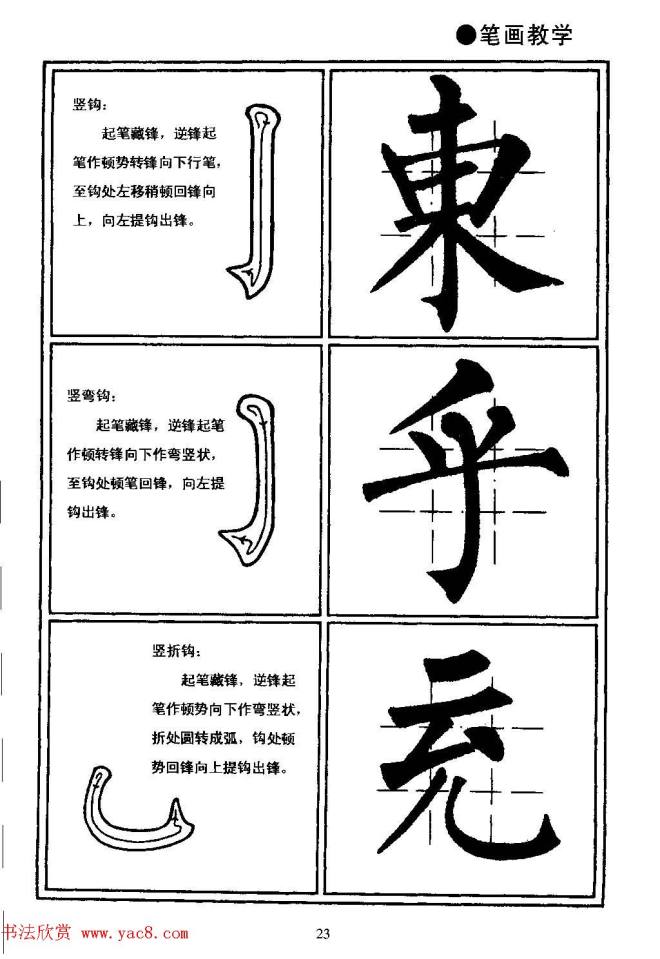 ●笔画教学
竖钩：
起笔藏锋，逆锋起
笔作顿势转锋向下行笔，
至钩处左移稍顿回锋向
上，向左提钩出锋。
東
竖弯钩：
起笔藏锋，逆锋起笔
作顿转锋向下作弯竖状，
至钩处顿笔回锋，向左提
钩出锋。
乎
竖折钩：
起笔藏锋，逆锋起
笔作顿势向下作弯竖状，
折处圆转成弧，钩处顿
势回锋向上提钩出锋。
充
书法欣赏 www.yac8.com
23